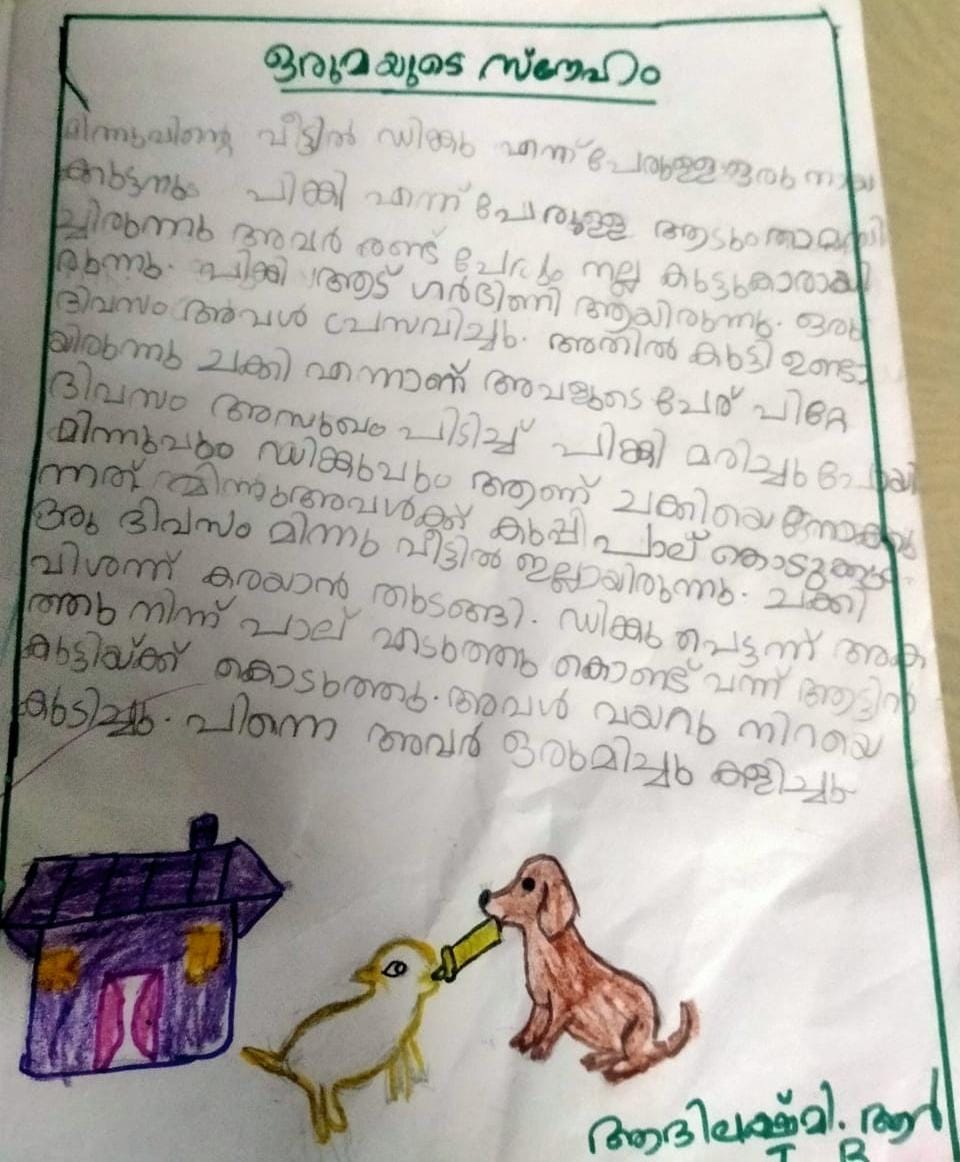 ഒരുമയുടെ സ്നേഹം
മിന്നുവിന്റെ വീട്ടിൽ ഡിങ്കു എന്ന് പേരുള്ള ഒരു നായ
കുട്ടനും പിങ്കി എന്ന് പേരുള്ള ആടും താമസി
ച്ചിരുന്നു അവർ രണ്ട് പേരും നല്ല കുട്ടുകാരായി
രുന്നു. പിങ്കി ആട് ഗർഭിണി ആയിരുന്നു. ഒരു
ദിവസം അവൾ പ്രസവിച്ചു. അതിൽ കുട്ടി ഉണ്ടാ
യിരുന്നു ചക്കി എന്നാണ് അവളുടെ പേര് പിറ്റേ
ദിവസം അസുഖം പിടിച്ച് പിങ്കി മരിച്ചു പോയി
മിന്നുവും ഡിങ്കുവും ആണ് ചക്കിയെ നോക്കു
ന്നത് മിന്നു അവൾക്ക് കുപ്പി പാല് കൊടുക്കും.
ഒരു ദിവസം മിന്നു വീട്ടിൽ ഇല്ലായിരുന്നു. ചക്കി
വിശന്ന് കരയാൻ തുടങ്ങി. ഡിങ്കു പെട്ടന്ന് അക
ത്തു നിന്ന് പാല് എടുത്തു കൊണ്ട് വന്ന് ആട്ടിൻ
കുട്ടിയ്ക്ക് കൊടുത്തു. അവൾ വയറു നിറയെ
കുടിച്ചു. പിന്നെ അവർ ഒരുമിച്ചു കളിച്ചു
ആദിലക്ഷ്മി. ആർ
I B